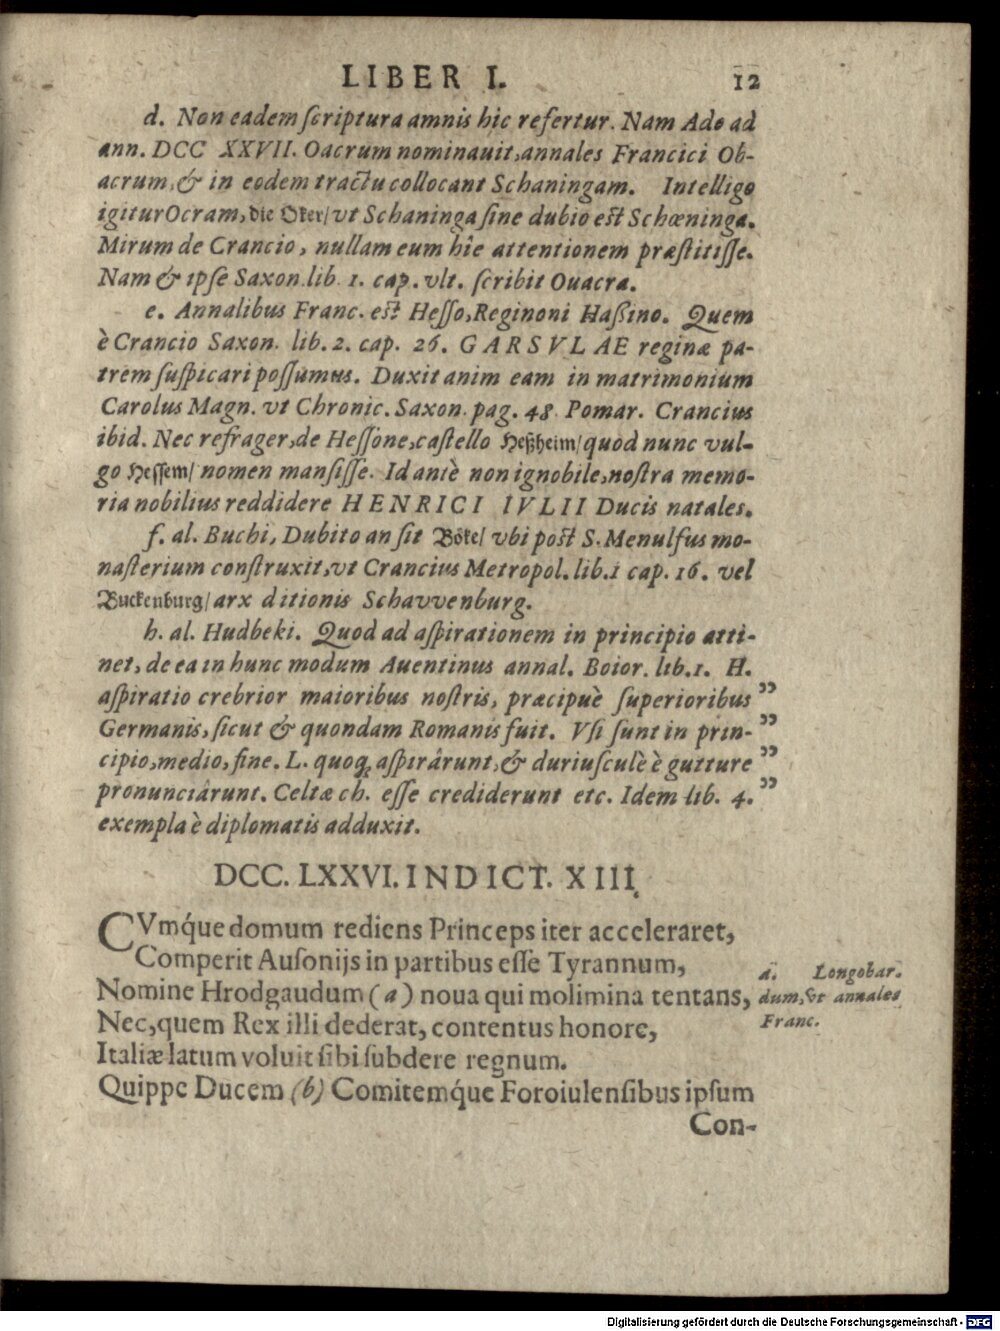 LIBER I. 12
d. Non eadem ſcriptura amnis hic refertur. Nam Ado ad
ann. DCC XXVII. Oacrum nominauit, annales Francici Ob-
acrum, & in eodem tractu collocant Schaningam. Intelligo
igitur Ocram, die Oker/ vt Schaninga ſine dubio eſt Schœninga.
Mirum de Crancio, nullam eum hîc attentionem præſtitiſſe.
Nam & ipſe Saxon. lib. 1. cap. vlt. ſcribit Ouacra.
e. Annalibus Franc. eſt Heſſo, Reginoni Haßino. Quem
è Crancio Saxon. lib. 2. cap. 26. GARSVLAE reginæ pa-
trem ſuſpicari poſſumus. Duxit anim eam in matrimonium
Carolus Magn. vt Chronic. Saxon. pag. 48. Pomar. Crancius
ibid. Nec refrager, de Heſſone, caſtello Heßheim/ quod nunc vul-
go Heſſem/ nomen manſiſſe. Id antè non ignobile, noſtra memo-
ria nobilius reddidere HENRICI IVLII Ducis natales.
f. al. Buchi, Dubito an ſit Böke/ vbi poſt S. Menulfus mo-
naſterium conſtruxit, vt Crancius Metropol. lib. 1 cap. 16. vel
Buckenburg/ arx ditionis Schavvenburg.
h. al. Hudbeki. Quod ad aſpirationem in principio atti-
net, de ea in hunc modum Auentinus annal. Boior. lib. 1. H.
aſpiratio crebrior maioribus noſtris, præcipuè ſuperioribus ”
Germanis, ſicut & quondam Romanis fuit. Vſi ſunt in prin- ”
cipio, medio, fine. L. quoq; aſpirârunt, & duriuſculè è gutture ”
pronunciârunt. Celtæ ch. eſſe crediderunt etc. Idem lib. 4. ”
exempla è diplomatis adduxit.
DCC. LXXVI. INDICT. XIII.
CVmq́ue domum rediens Princeps iter acceleraret,
Comperit Auſonijs in partibus eſſe Tyrannum,
Nomine Hrodgaudum (a) noua qui molimina tentans,
Nec, quem Rex illi dederat, contentus honore,
Italiæ latum voluit ſibi ſubdere regnum.
Quippe Ducem (b) Comitemq́ue Foroiulenſibus ipſum
Con-
a. Longobar.
dum, vt annales
Franc.
Digitalisierung gefördert durch die Deutsche Forschungsgemeinschaft - DFG